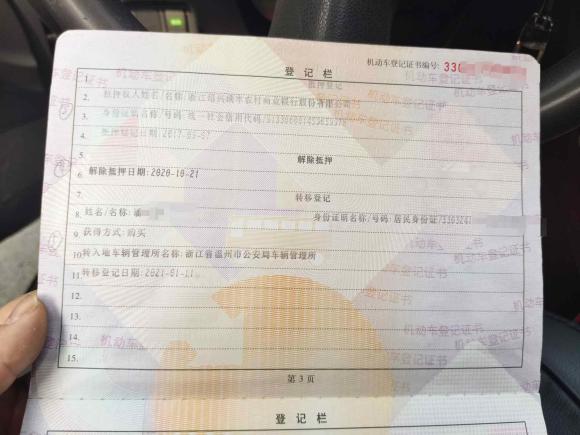 登记栏
机动车登记证书编号: 330
1. 抵押登记
2. 抵押权人姓名/名称:浙江绍兴瑞丰农村商业银行股份有限公司
3. 身份证明名称/号码:统一社会信用代码/
4. 抵押登记日期:2017-
5. 解除抵押
6. 解除抵押日期:2020-10-21
7. 转移登记
8. 姓名/名称: 身份证明名称/号码:居民身份证/
9. 获得方式:购买
10. 转入地车辆管理所名称:浙江省温州市公安局车辆管理所
11. 转移登记日期:2021-01-11
12.
13.
14.
15.
第 3 页
登记栏